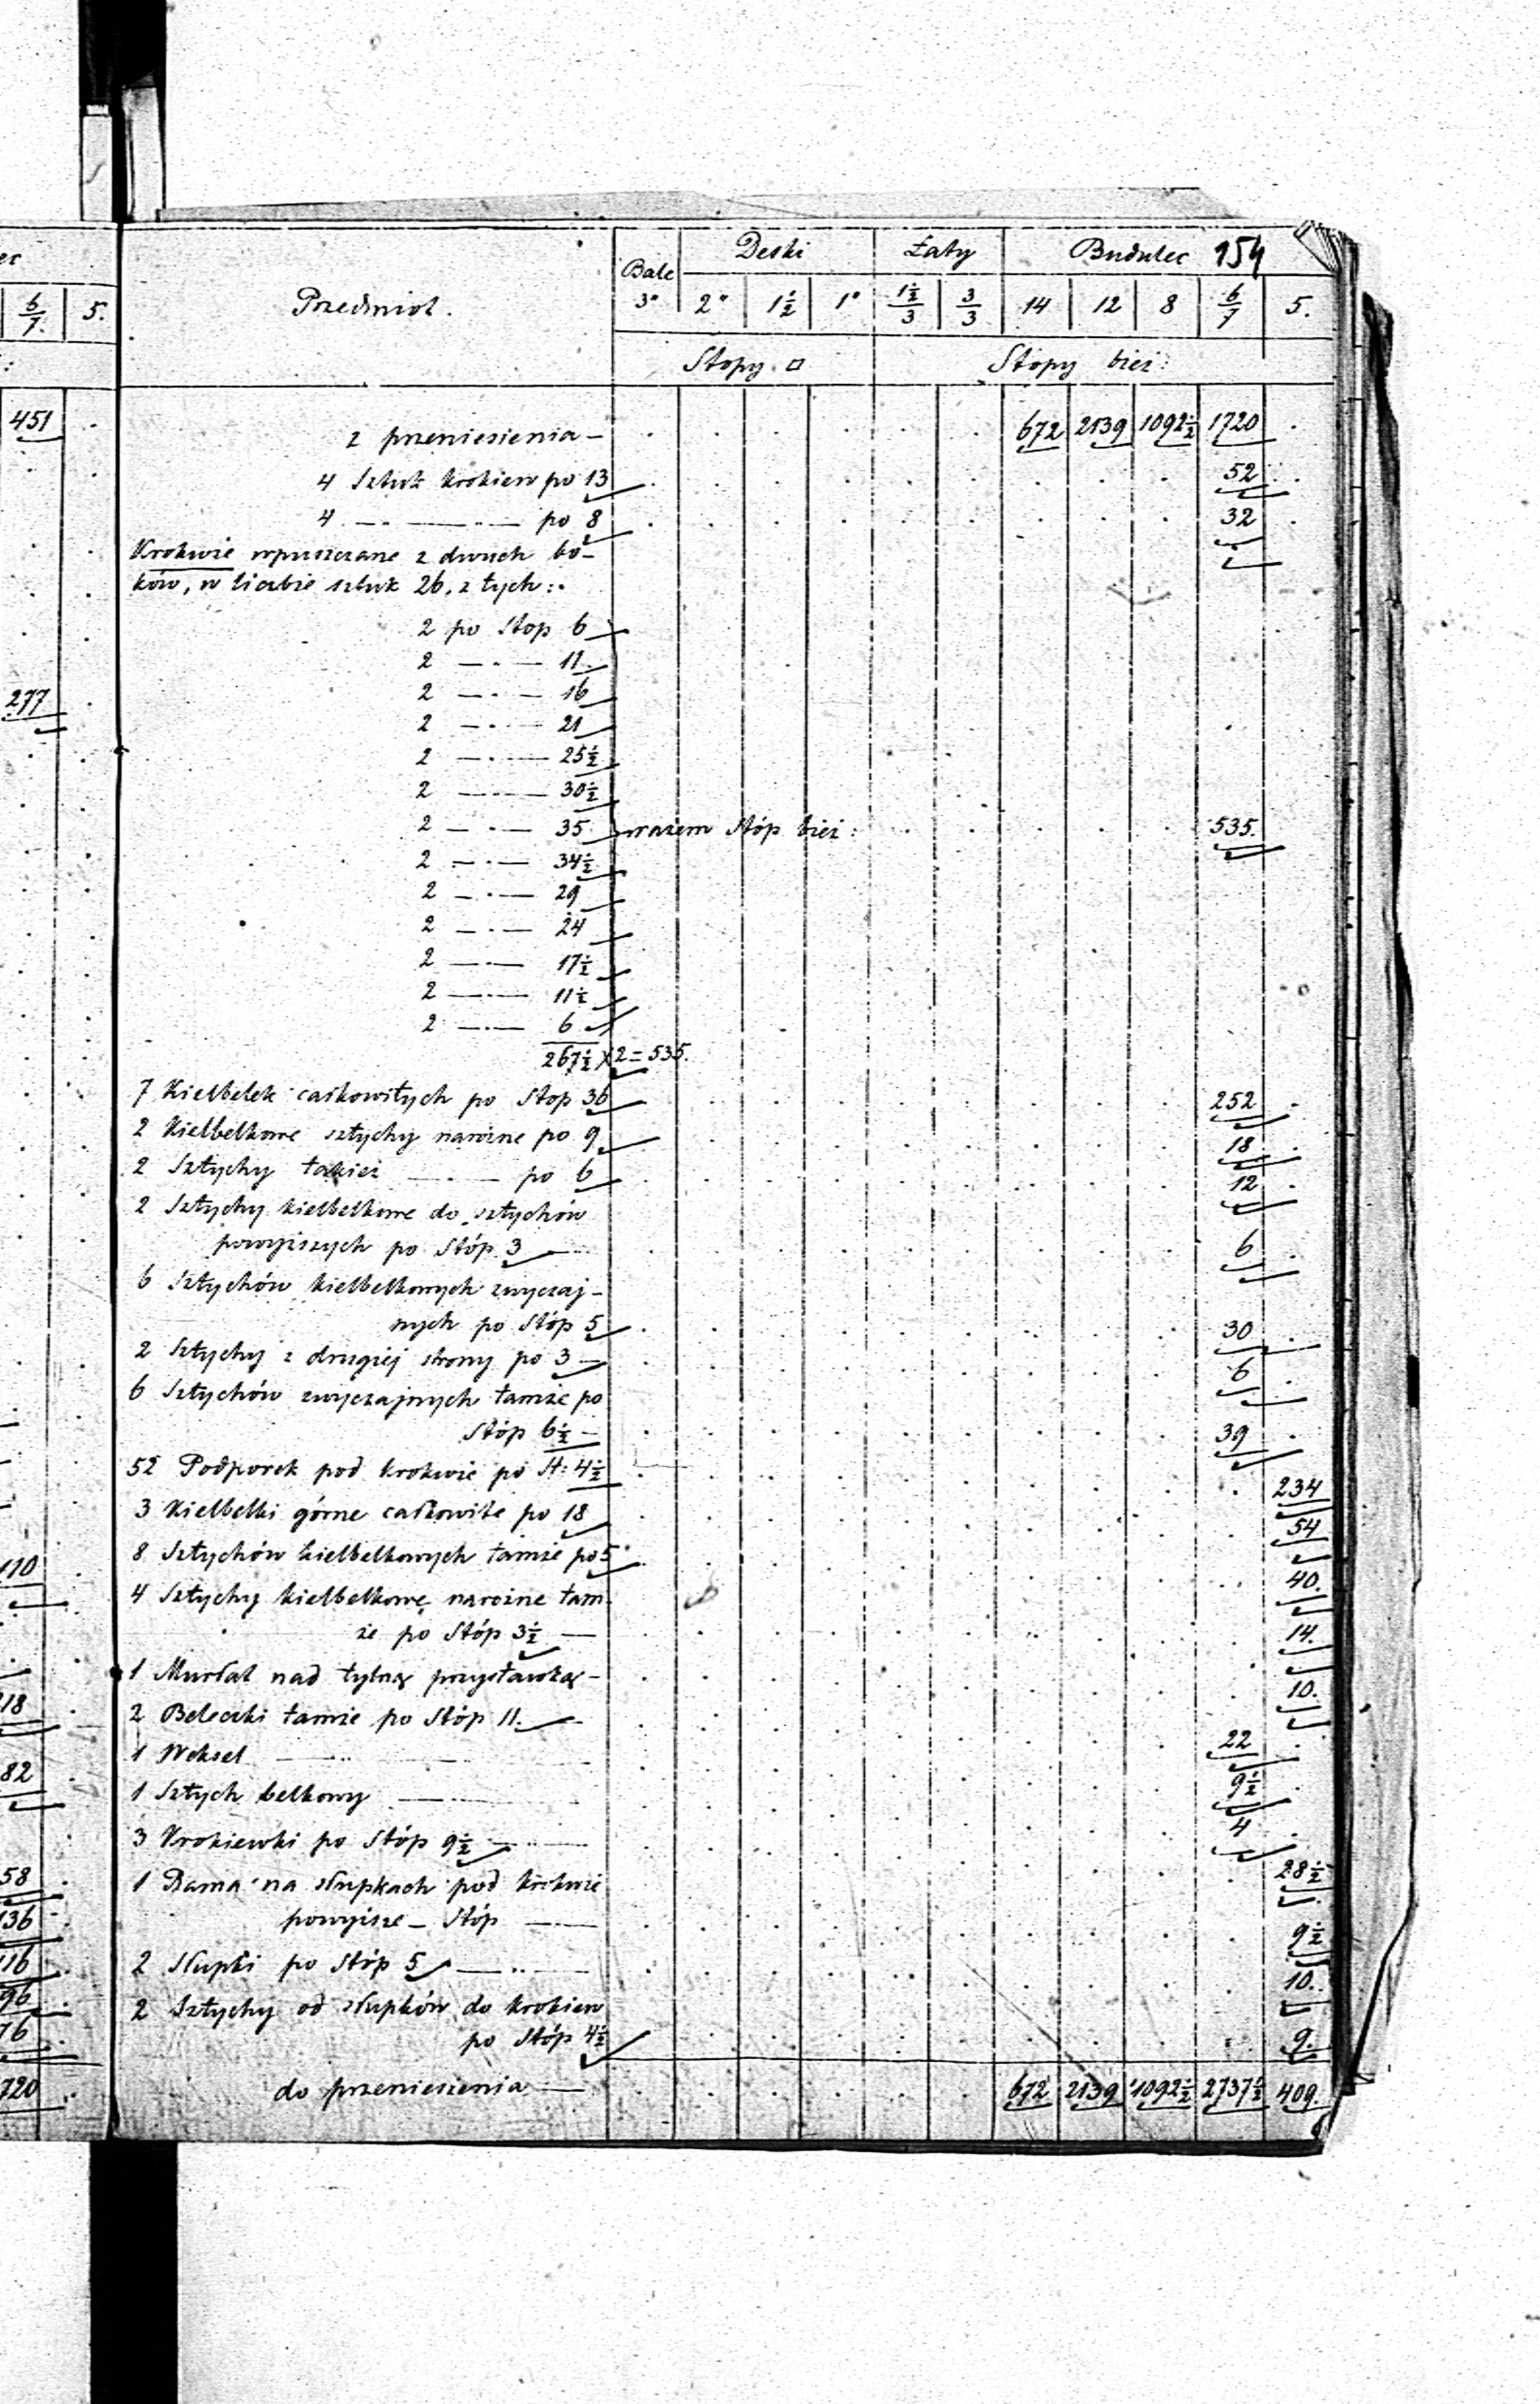 154
Przedmiot. Bale Deski Łaty Budulec
3" 2" 1½ 1" 1½/3 3/3 14 12 8 6/7 5.
Stopy □ Stopy bież:
z przeniesienia — 672 2139 1092½ 1720
4 Sztuk krokiew po 13 52
4 — " — " — po 8 32
Krokwie wpuszczane z dwuch bo-
ków, w liczbie sztuk 26, z tych:
2 po Stop 6
2 — " — 11
2 — " — 16
2 — " — 21
2 — " — 25½
2 — " — 30½
2 — " — 35 razem Stóp bież: 535.
2 — " — 34½
2 — " — 29
2 — " — 24
2 — " — 17½
2 — " — 11½
2 — " — 6
267½ x 2 = 535.
7 Kielbelek całkowitych po Stop 36 252
2 Kielbelkowe sztychy narożne po 9 18
2 Sztychy takież — " — po 6 12
2 Sztychy kielbelkowe do sztychów
powyższych po Stóp 3 6
6 Sztychów kielbelkowych zwyczaj-
nych po Stóp 5 30
2 Sztychy z drugiej strony po 3 — 6
6 Sztychów zwyczajnych tamże po
Stóp 6½ — 39
52 Podporek pod krokwie po St: 4½ 234
3 Kielbelki górne całkowite po 18 54
8 Sztychów kielbelkowych tamże po 5 40.
4 Sztychy kielbelkowe narożne tam-
że po Stóp 3½ — 14.
1 Murłat nad tylną przystawką — 10.
2 Beleczki tamże po Stóp 11. — 22
1 Weksel — " — 9½
1 Sztych belkowy — " — 4
3 Krokiewki po Stóp 9½ — " — 28½
1 Rama na słupkach pod krokwie
powyższe — Stóp — " — 9½
2 Słupki po Stóp 5 — " — 10.
2 Sztychy od słupków do krokiew
po Stóp 4½ 9.
do przeniesienia — 672 2139 1092½ 2737½ 409.
6/7. 5.
451
277
110
82
58
136
116
96
76
720